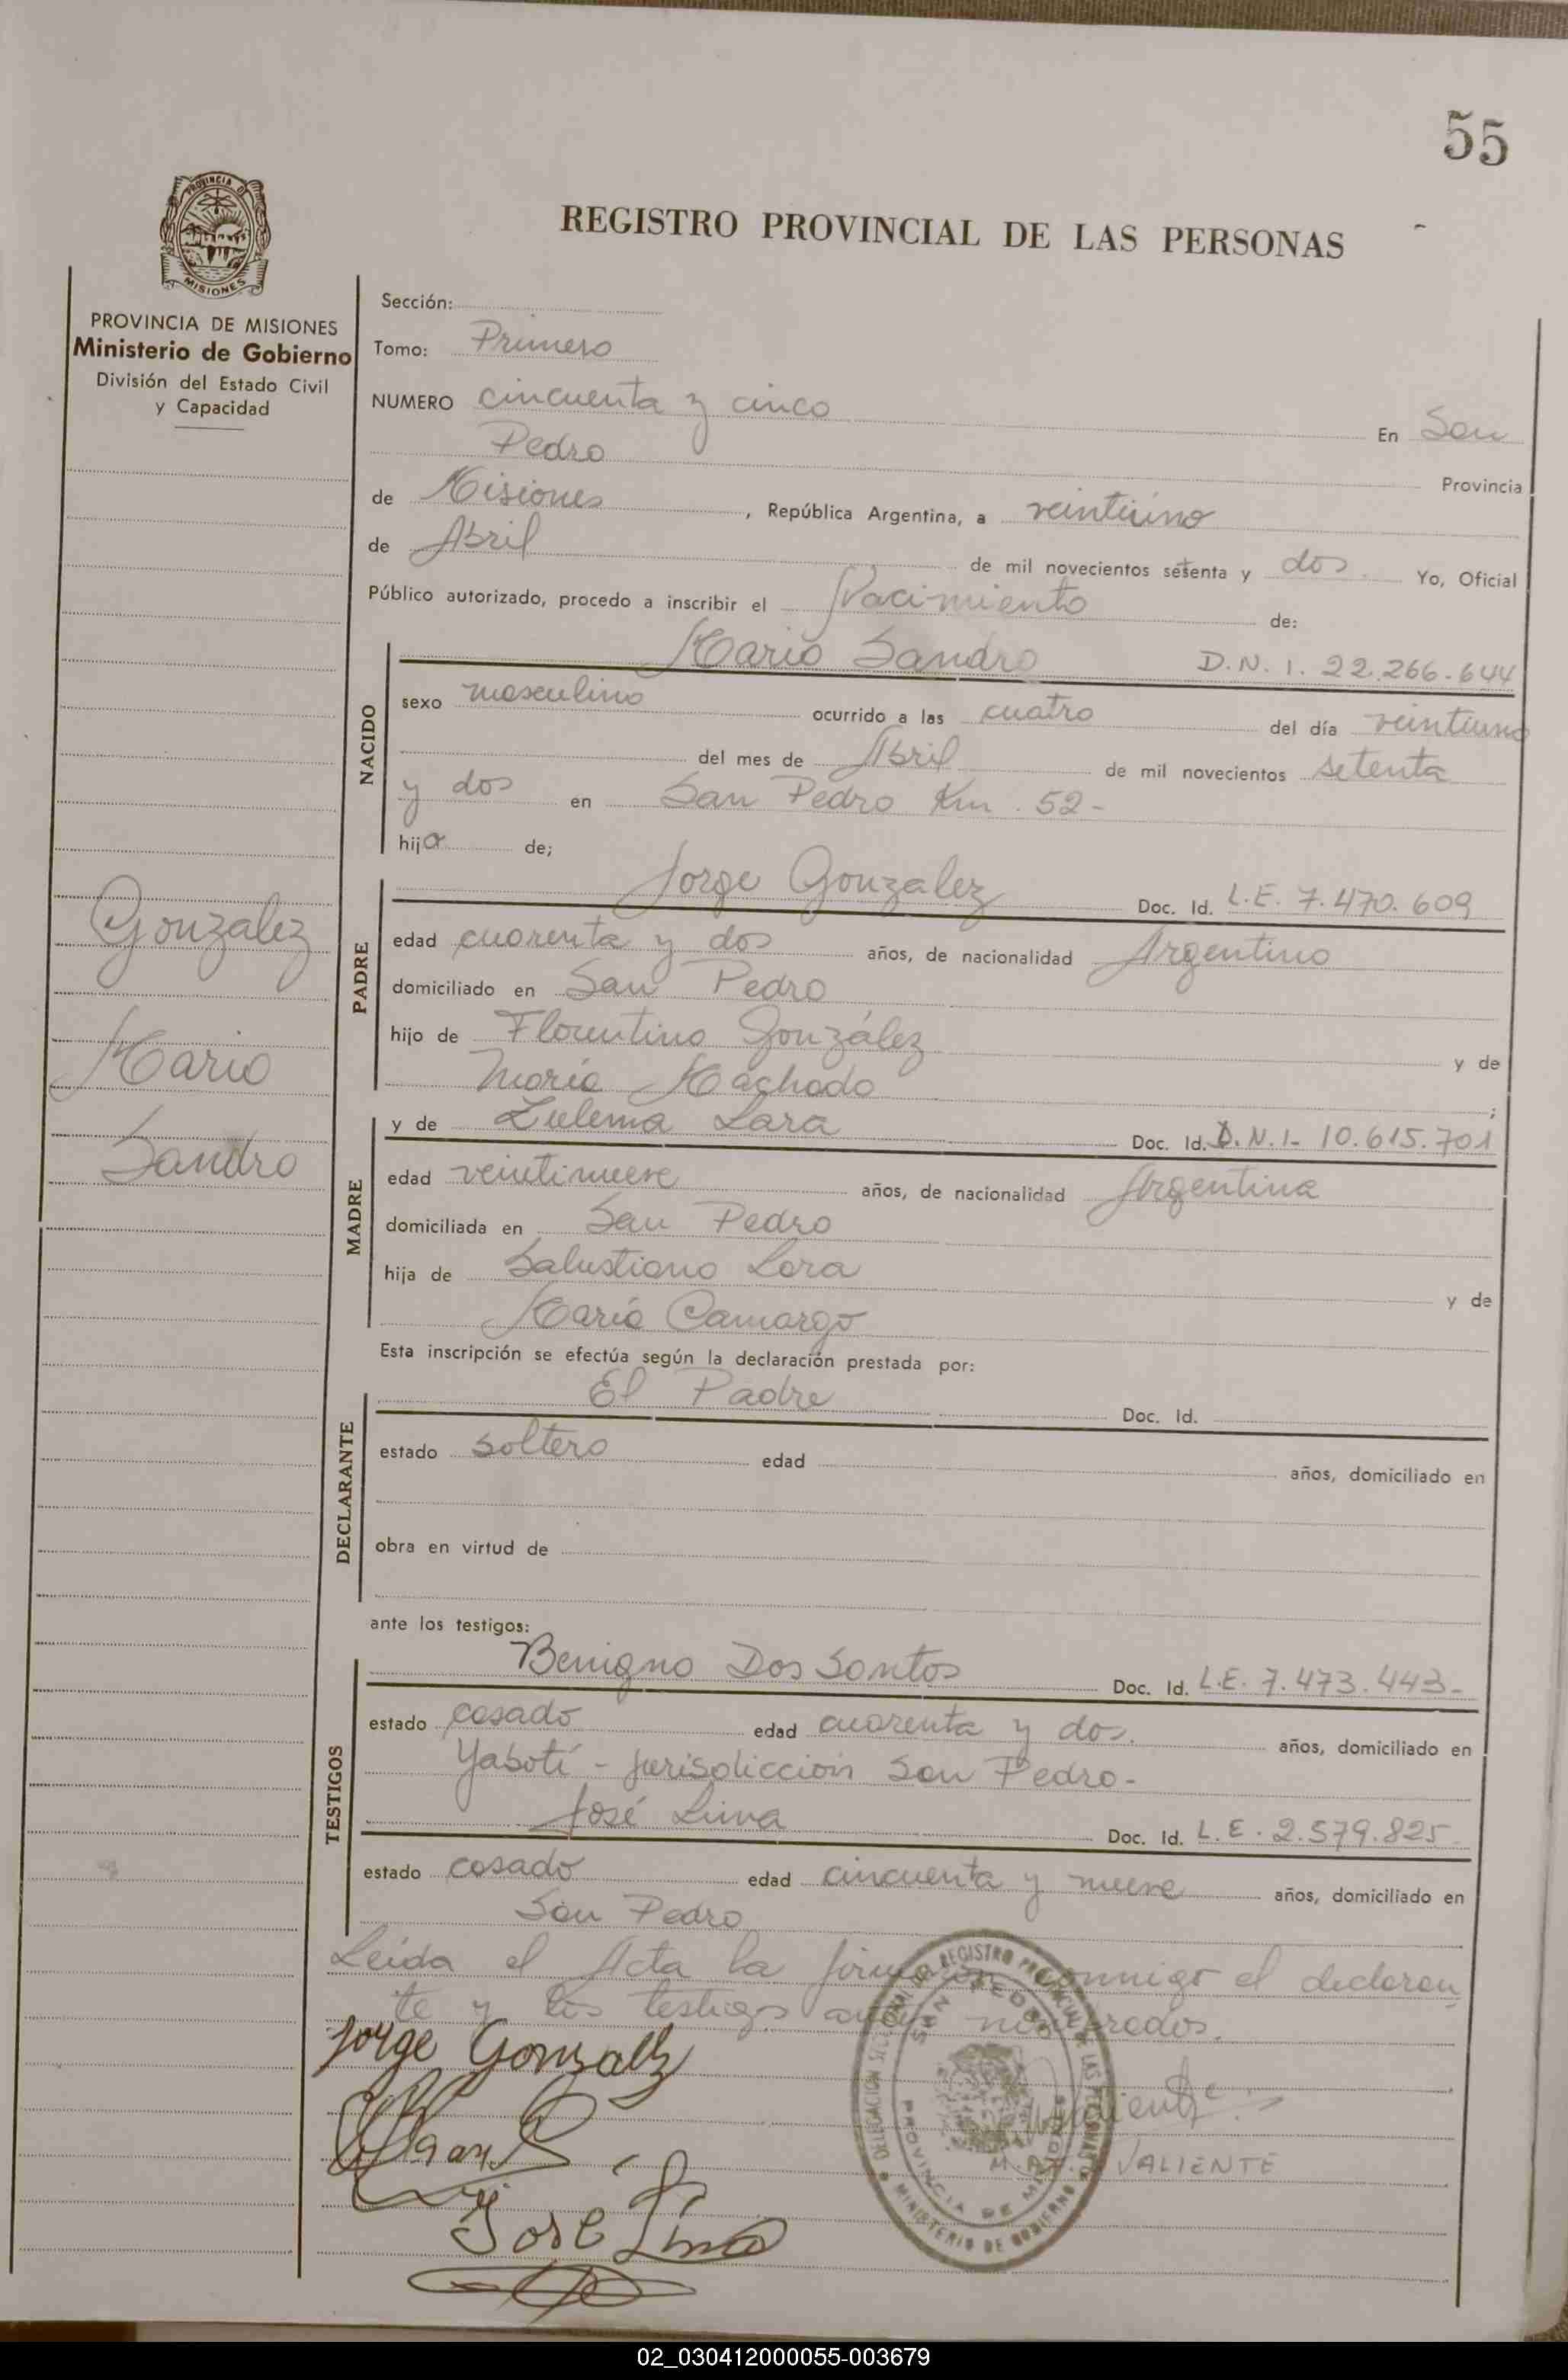 55
PROVINCIA DE
MISIONES
REGISTRO PROVINCIAL DE LAS PERSONAS
PROVINCIA DE MISIONES
Ministerio de Gobierno
División del Estado Civil
y Capacidad
Gonzalez
Mario
Sandro
Sección:
Tomo: Primero
NUMERO cincuenta y cinco En San
Pedro Provincia
de Misiones, República Argentina, a veintiuno
de Abril de mil novecientos setenta y dos. Yo, Oficial
Público autorizado, procedo a inscribir el Nacimiento de:
NACIDO
Mario Sandro D.N.I. 22.266.644
sexo masculino ocurrido a las cuatro del día veintiuno
del mes de Abril de mil novecientos setenta
y dos en San Pedro Km. 52-
hijo de;
PADRE
Jorge Gonzalez Doc. Id. L.E. 7.470.609
edad cuarenta y dos años, de nacionalidad Argentino
domiciliado en San Pedro
hijo de Florentino González y de
María Machado ;
MADRE
y de Zulema Lara Doc. Id. D.N.I- 10.615.701
edad veintinueve años, de nacionalidad Argentina
domiciliada en San Pedro
hija de Salustiano Lara y de
María Camargo
Esta inscripción se efectúa según la declaración prestada por:
DECLARANTE
El Padre Doc. Id.
estado soltero edad años, domiciliado en
obra en virtud de
ante los testigos:
TESTIGOS
Benigno Dos Santos Doc. Id. L.E. 7.473.443-
estado casado edad cuarenta y dos. años, domiciliado en
Yabotí - jurisdicción San Pedro-
José Lima Doc. Id. L.E. 2.579.825
estado casado edad cincuenta y nueve años, domiciliado en
San Pedro
Leída el Acta la firman conmigo el declaran
te y los testigos antes nombrados.
Jorge Gonzalez
José Lima
VALIENTE
DELEGACION SECCIONAL DEL REGISTRO PROVINCIAL DE LAS PERSONAS
SAN PEDRO
PROVINCIA DE MISIONES
MINISTERIO DE GOBIERNO
02_030412000055-003679